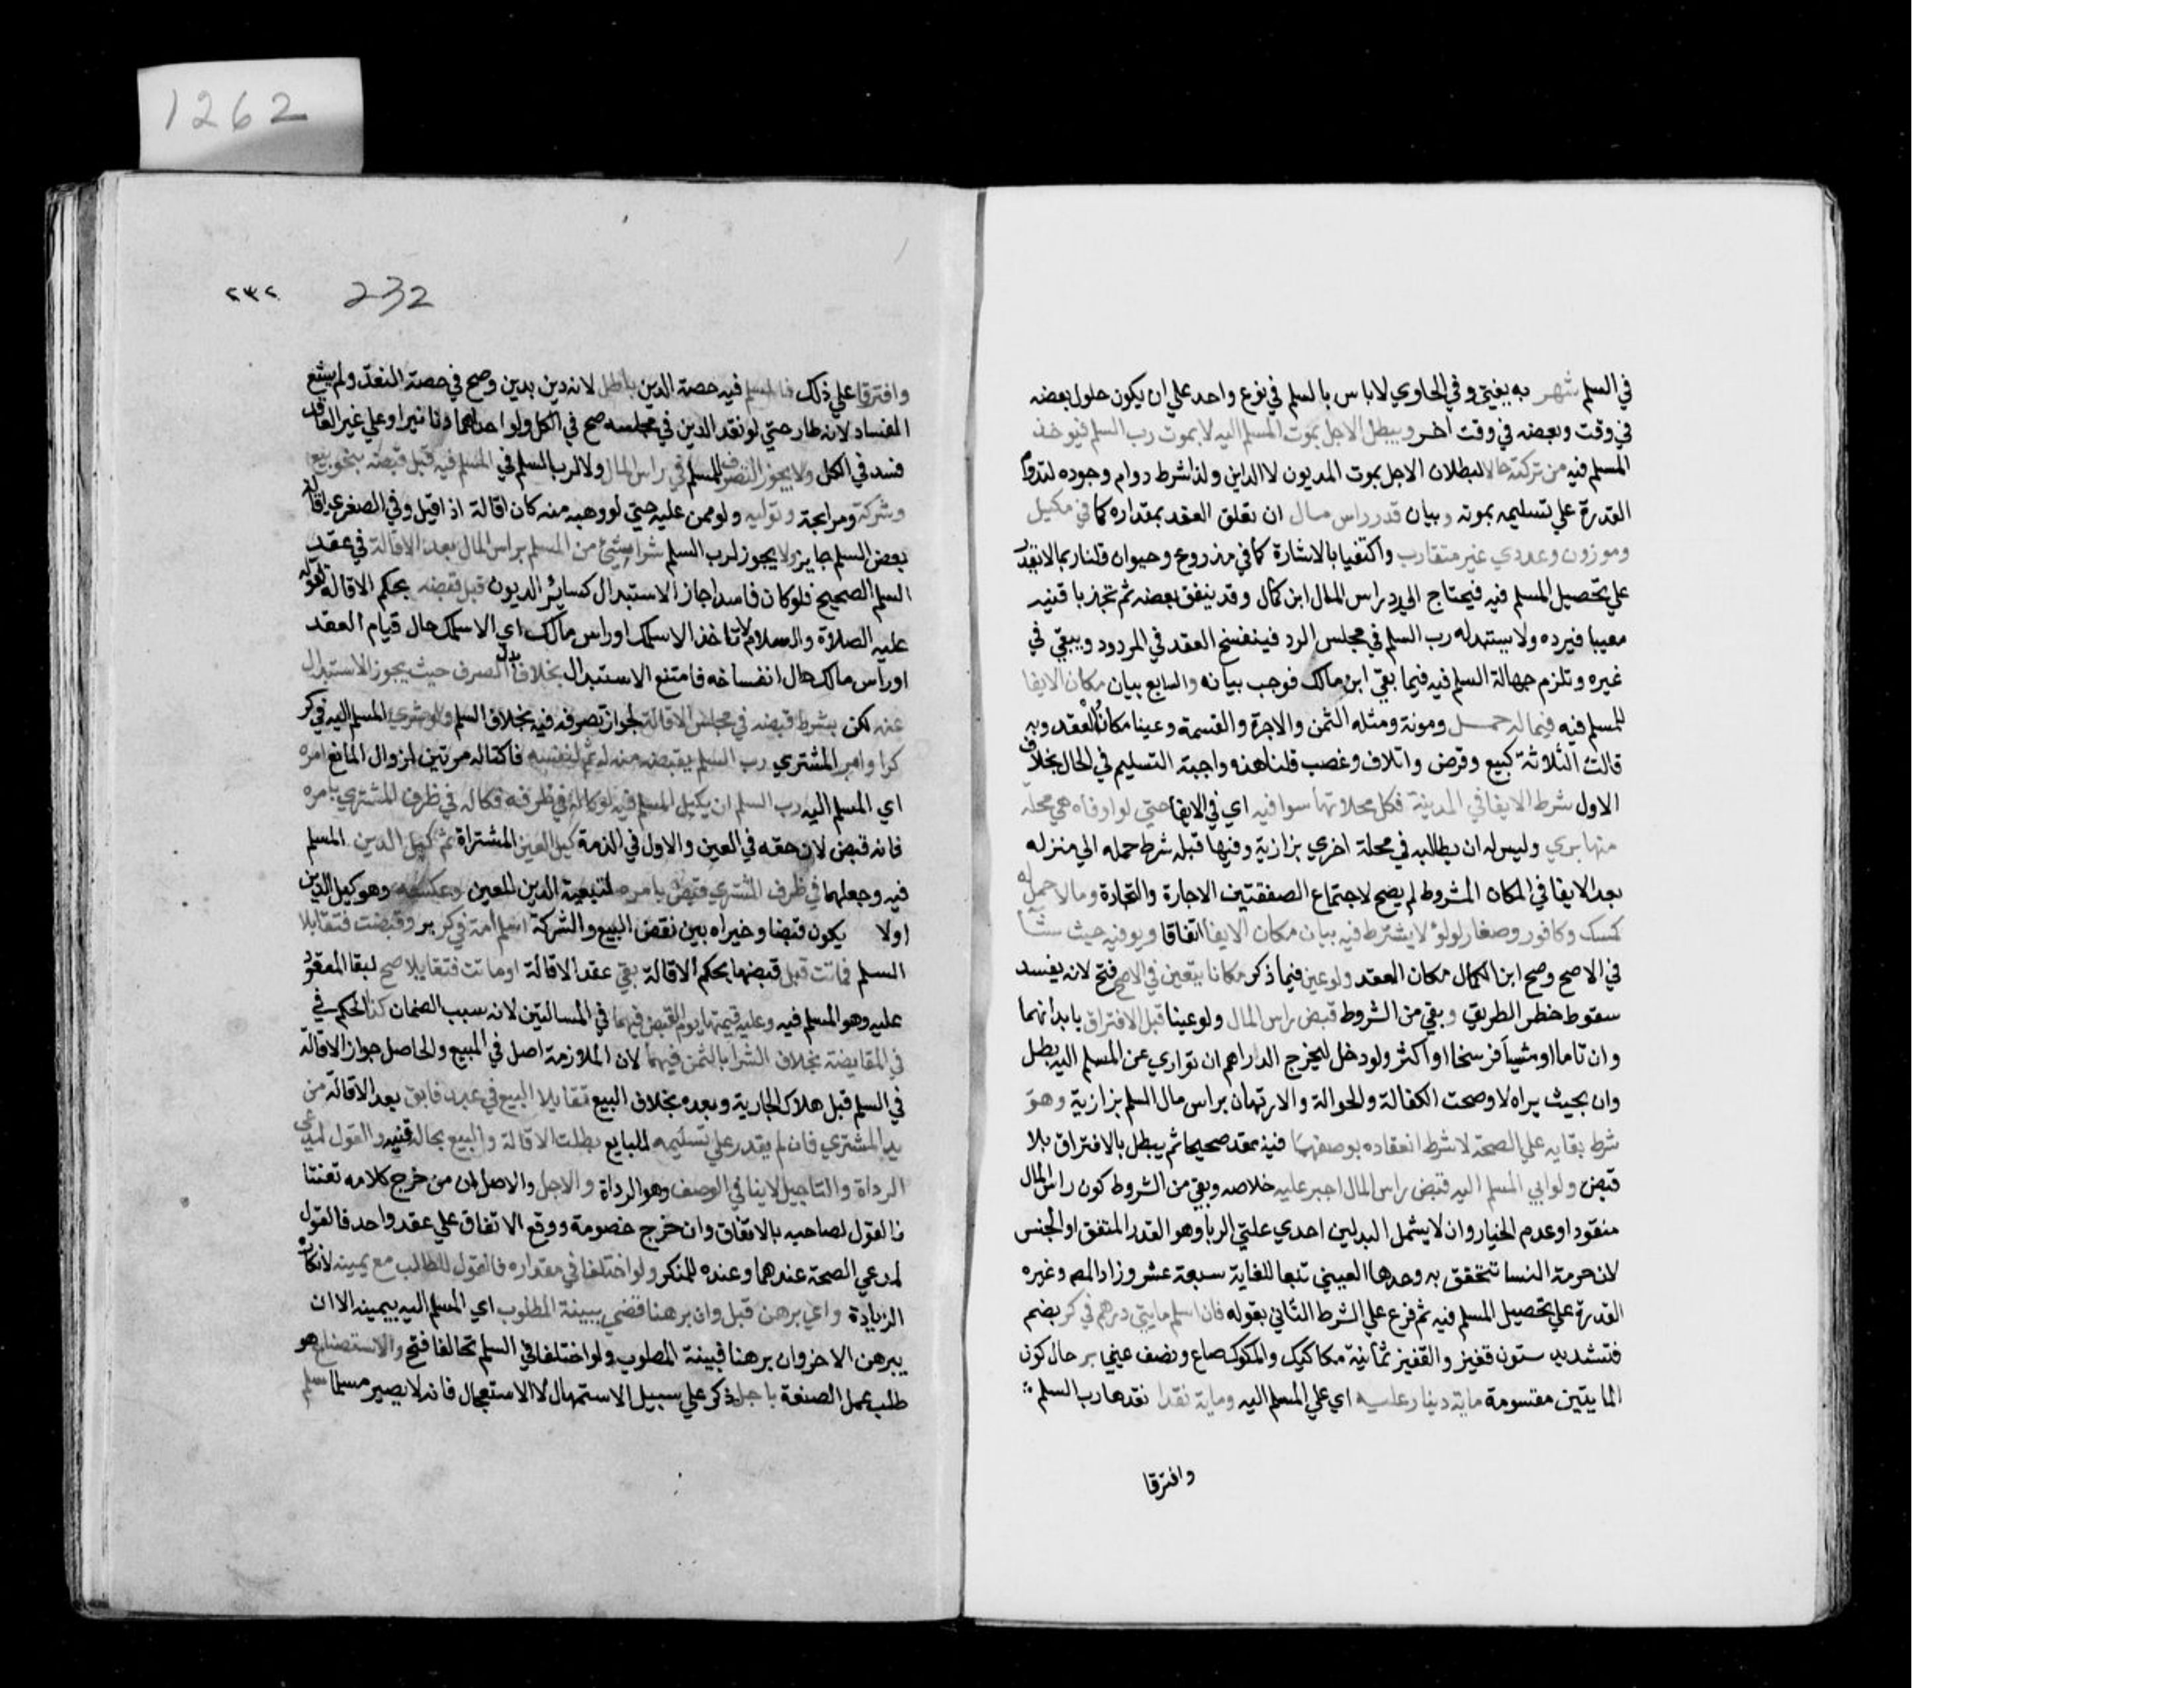 1262
في السلم شهر به يفتي وفي الحاوي لا باس بالسلم في نوع واحد علي ان يكون حلول بعضه
في وقت وبعضه في وقت اخر ويبطل الاجل بموت المسلم اليه لا بموت رب السلم فيوخذ
المسلم فيه من تركته حالا لبطلان الاجل بموت المديون لا الداين ولذا شرط دوام وجوده لتدوم
القدرة علي تسليمه بموته وبيان قدر راس مال ان تعلق العقد بمقداره كما في مكيل
وموزون وعددي غير متقارب واكتفيا بالاشارة كما في مذروع وحيوان قلنا ربما لا يقدر
علي تحصيل المسلم فيه فيحتاج الي رد راس المال ابن كمال وقد ينفق بعضه ثم تجد باقيه
معيبا فيرده ولا يستبدله رب السلم في مجلس الرد فينفسخ العقد في المردود ويبقي في
غيره وتلزم جهالة السلم فيه فيما بقي ابن مالك فوجب بيانه والسابع بيان مكان الايفا
للمسلم فيه فيما له حمل ومونة ومثله الثمن والاجرة والقسمة وعينا مكان العقد وبه
قالت الثلاثة كبيع وقرض واتلاف وغصب قلنا هذه واجبة التسليم في الحال بخلاف
الاول شرط الايفا في المدينة فكل محلاتها سوا فيه اي في الايفا حتي لو اوفاه في محلة
منها بري وليس له ان يطالبه في محلة اخري بزازية وفيها قبله شرط حمله الي منزله
بعد الايفا في المكان المشروط لم يصح لاجتماع الصفقتين الاجارة والتجارة وما لا حمل له
كمسك وكافور وصغار لولؤ لا يشترط فيه بيان مكان الايفا اتفاقا ويوفيه حيث شآ
في الاصح وصح ابن الكمال مكان العقد ولو عين فيما ذكر مكانا يتعين في الاصح فتح لانه يفسد
سقوط خطر الطريق وبقي من الشروط قبض راس المال ولو عينا قبل الافتراق بابدانهما
وان ناما او مشيا فرسخا او اكثر ولو دخل ليخرج الدراهم ان تواري عن المسلم اليه بطل
وان بحيث يراه لا وصحت الكفالة والحوالة والارتهان براس مال السلم بزازية وهو
شرط بقايه علي الصحة لا شرط انعقاده بوصفهما فينعقد صحيحا ثم يبطل بالافتراق بلا
قبض ولو ابي المسلم اليه قبض راس المال اجبر عليه خلاصه وبقي من الشروط كون راس المال
منقودا وعدم الخيار وان لا يشمل البدلين احدي علتي الربا وهو القدر المتفق او الجنس
لان حرمة النسا تتحقق به وحدها العيني تبعا للغاية سبعة عشر وزاد المص وغيره
القدرة علي تحصيل المسلم فيه ثم فرع علي الشرط الثاني بقوله فان اسلم مايتي درهم في كر بضم
فتشديد ستون قفيز والقفيز ثمانية مكاكيك والمكوك صاع ونصف عيني بر حال كون
المايتين مقسومة ماية دينا عليه اي علي المسلم اليه وماية نقدا نقدها رب السلم
وافترقا
٢٣٢ 232
وافترقا علي ذلك فالمسلم فيه حصة الدين باطل لانه دين بدين وصح في حصة النقد ولم يشع
الفساد لانه طار حتي لو نقد الدين في مجلسه صح في الكل ولو احداهما دنانير او علي غير العاقد
فسد في الكل ولا يجوز التصرف للمسلم في راس المال ولا لرب السلم في المسلم فيه قبل قبضه بنحو بيع
وشركة ومرابحة وتولية ولو ممن عليه حتي لو وهبه منه كان اقالة اذا قبل وفي الصغري اقالة
بعض السلم جايز ولا يجوز لرب السلم شرا شئ من المسلم براس المال بعد الاقالة في عقد
السلم الصحيح فلو كان فاسدا جاز الاستبدال كسائر الديون قبل قبضه بحكم الاقالة لقوله
عليه الصلاة والسلام لا تاخذ الا سلمك او راس مالك اي الا سلمك حال قيام العقد
او راس مالك حال انفساخه فامتنع الاستبدال بخلاف بدل الصرف حيث يجوز الاستبدال
عنه لكن بشرط قبضه في مجلس الاقالة لجواز تصرفه فيه بخلاف السلم ولو شري المسلم اليه في كر
كرا وامر المشتري رب السلم بقبضه منه له ثم لنفسه فاكتاله مرتين لزوال المانع امره
اي المسلم اليه رب السلم ان يكيل المسلم فيه في ظرفه فكاله في ظرف المشتري بامره
فانه قبض لان حقه في العين والاول في الذمة كيل العين المشتراة ثم كيل الدين المسلم
فيه وجعلهما في ظرف المشتري قبض بامره لتبعية الدين للعين وعكسه وهو كيل الدين
اولا يكون قبضا وخيراه بين نقض البيع والشركة اسلم امة في كر بر وقبضت فتقايلا
السلم فماتت قبل قبضها بحكم الاقالة بقي عقد الاقالة او ماتت فتقايلا صح لبقا المعقود
عليه وهو المسلم فيه وعليه قيمتها يوم القبض فيهما في المسالتين لانه سبب الضمان كذا الحكم في
في المقايضة بخلاف الشرا بالثمن فيهما لان الملازمة اصل في المبيع والحاصل جواز الاقالة
في السلم قبل هلاك الجارية وبعده بخلاف البيع تقايلا البيع في عبد فابق بعد الاقالة من
يد المشتري فان لم يقدر علي تسليمه للبايع بطلت الاقالة والبيع بحاله قنيه والقول لمدعي
الرداة والتاجيل لا ينافي الوصف وهو الرداة والاجل والاصل ان من خرج كلامه تعنتا
فالقول لصاحبه بالاتفاق وان خرج خصومة ووقع الاتفاق علي عقد واحد فالقول
لمدعي الصحة عندهما وعنده للمنكر ولو اختلفا في مقداره فالقول للطالب مع يمينه لانكاره
الزيادة واي برهن قبل وان برهنا قضي ببينة المطلوب اي المسلم اليه بيمينه الا ان
يبرهن الاخر وان برهنا فبينة المطلوب ولو اختلفا في السلم تحالفا فتح والاستصناع هو
طلب عمل الصنعة باجل ذكر علي سبيل الاستمهال لا الاستعجال فانه لا يصير مسلما سلم